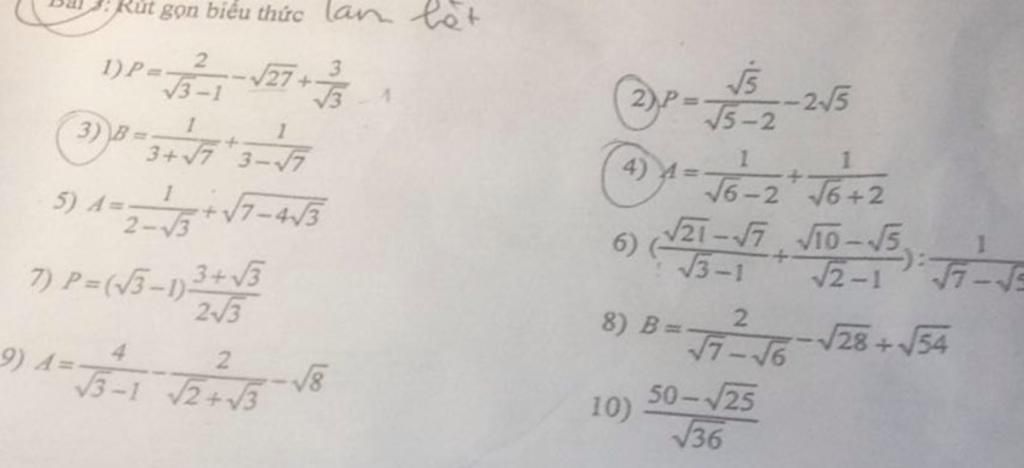 Bài 3: Rút gọn biểu thức
1) P = \frac{2}{\sqrt{3}-1} - \sqrt{27} + \frac{3}{\sqrt{3}}
2) P = \frac{\sqrt{5}}{\sqrt{5}-2} - 2\sqrt{5}
3) B = \frac{1}{3+\sqrt{7}} + \frac{1}{3-\sqrt{7}}
4) A = \frac{1}{\sqrt{6}-2} + \frac{1}{\sqrt{6}+2}
5) A = \frac{1}{2-\sqrt{3}} + \sqrt{7-4\sqrt{3}}
6) (\frac{\sqrt{21}-\sqrt{7}}{\sqrt{3}-1} + \frac{\sqrt{10}-\sqrt{5}}{\sqrt{2}-1}) : \frac{1}{\sqrt{7}-\sqrt{5}}
7) P = (\sqrt{3}-1)\frac{3+\sqrt{3}}{2\sqrt{3}}
8) B = \frac{2}{\sqrt{7}-\sqrt{6}} - \sqrt{28} + \sqrt{54}
9) A = \frac{4}{\sqrt{3}-1} - \frac{2}{\sqrt{2}+\sqrt{3}} - \sqrt{8}
10) \frac{50-\sqrt{25}}{\sqrt{36}}